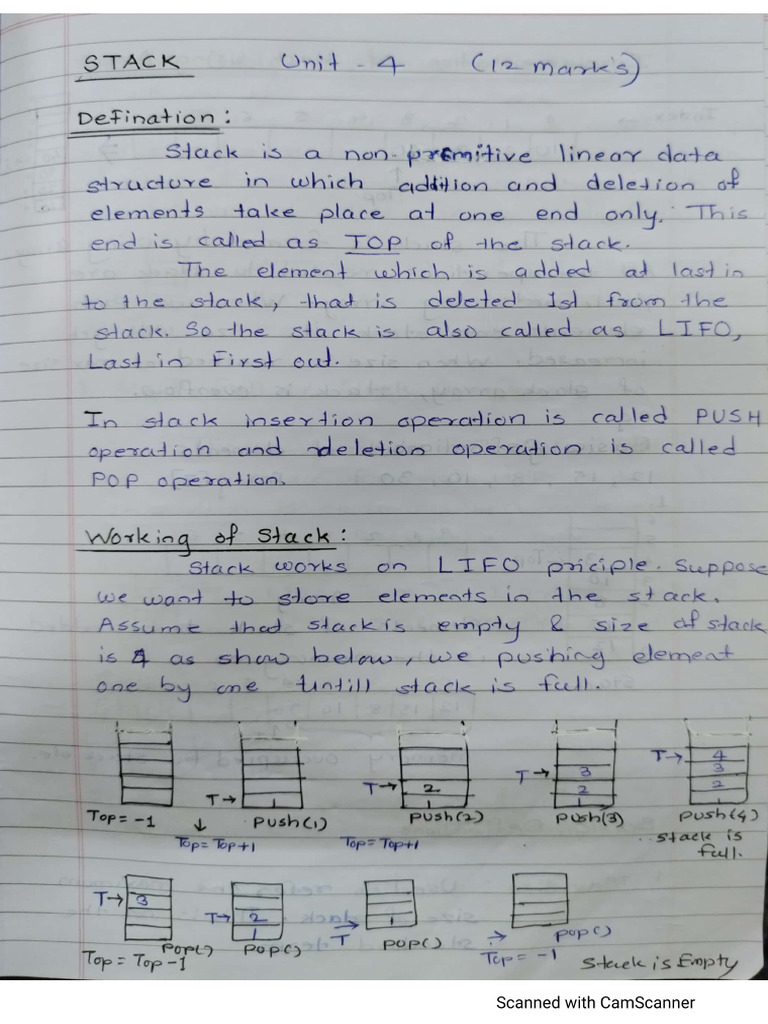 STACK Unit - 4 (12 marks)
Defination :
Stack is a non-premitive linear data
structure in which addition and deletion of
elements take place at one end only. This
end is called as TOP of the stack.
The element which is added at last in
to the stack, that is deleted 1st from the
stack. So the stack is also called as LIFO,
Last in First out.
In stack insertion operation is called PUSH
operation and deletion operation is called
POP operation.
Working of Stack :
Stack works on LIFO priciple. Suppose
we want to store elements in the stack.
Assume that stack is empty & size of stack
is 4 as show below, we pushing element
one by one untill stack is full.
T→ 2 T→ 3 2 T→ 4 3 2
T→
Top = -1 ↓ Push(1) Push(2) Push(3) Push(4)
Top = Top+1 Top = Top+1 stack is
full.
T→ 3 T→ 2 1
Pop() Pop() T Pop() Pop()
Top = Top-1 Top = -1 Stack is Empty
Scanned with CamScanner